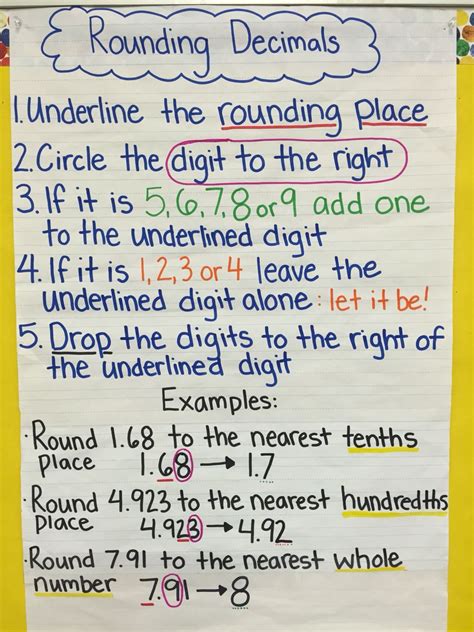 Rounding Decimals
1. Underline the rounding place
2. Circle the digit to the right
3. If it is 5,6,7,8 or 9 add one
to the underlined digit
4. If it is 1,2,3 or 4 leave the
underlined digit alone: let it be!
5. Drop the digits to the right of
the underlined digit
Examples:
·Round 1.68 to the nearest tenths
place 1.68 → 1.7
·Round 4.923 to the nearest hundredths
place 4.923 → 4.92
·Round 7.91 to the nearest whole
number 7.91 → 8